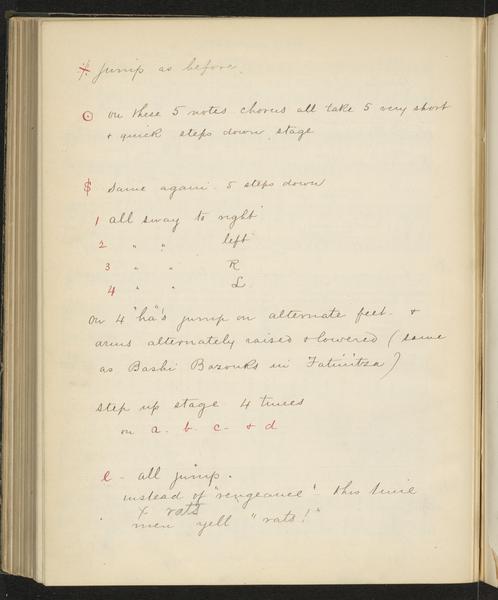 jump as before.
on these 5 notes chorus all take 5 very short
+ quick steps down stage
$ Same again 5 steps down
1 all sway to right
2 " " left
3 " " R
4 " " L
on 4 "ha"s jump on alternate feet &
arms alternately raised & lowered (same
as Bashi Bazouks in Fatinitza)
step up stage 4 times
on a. b. c. & d
e - all jump.
instead of "vengeance" this time
x rats
men yell "rats!"